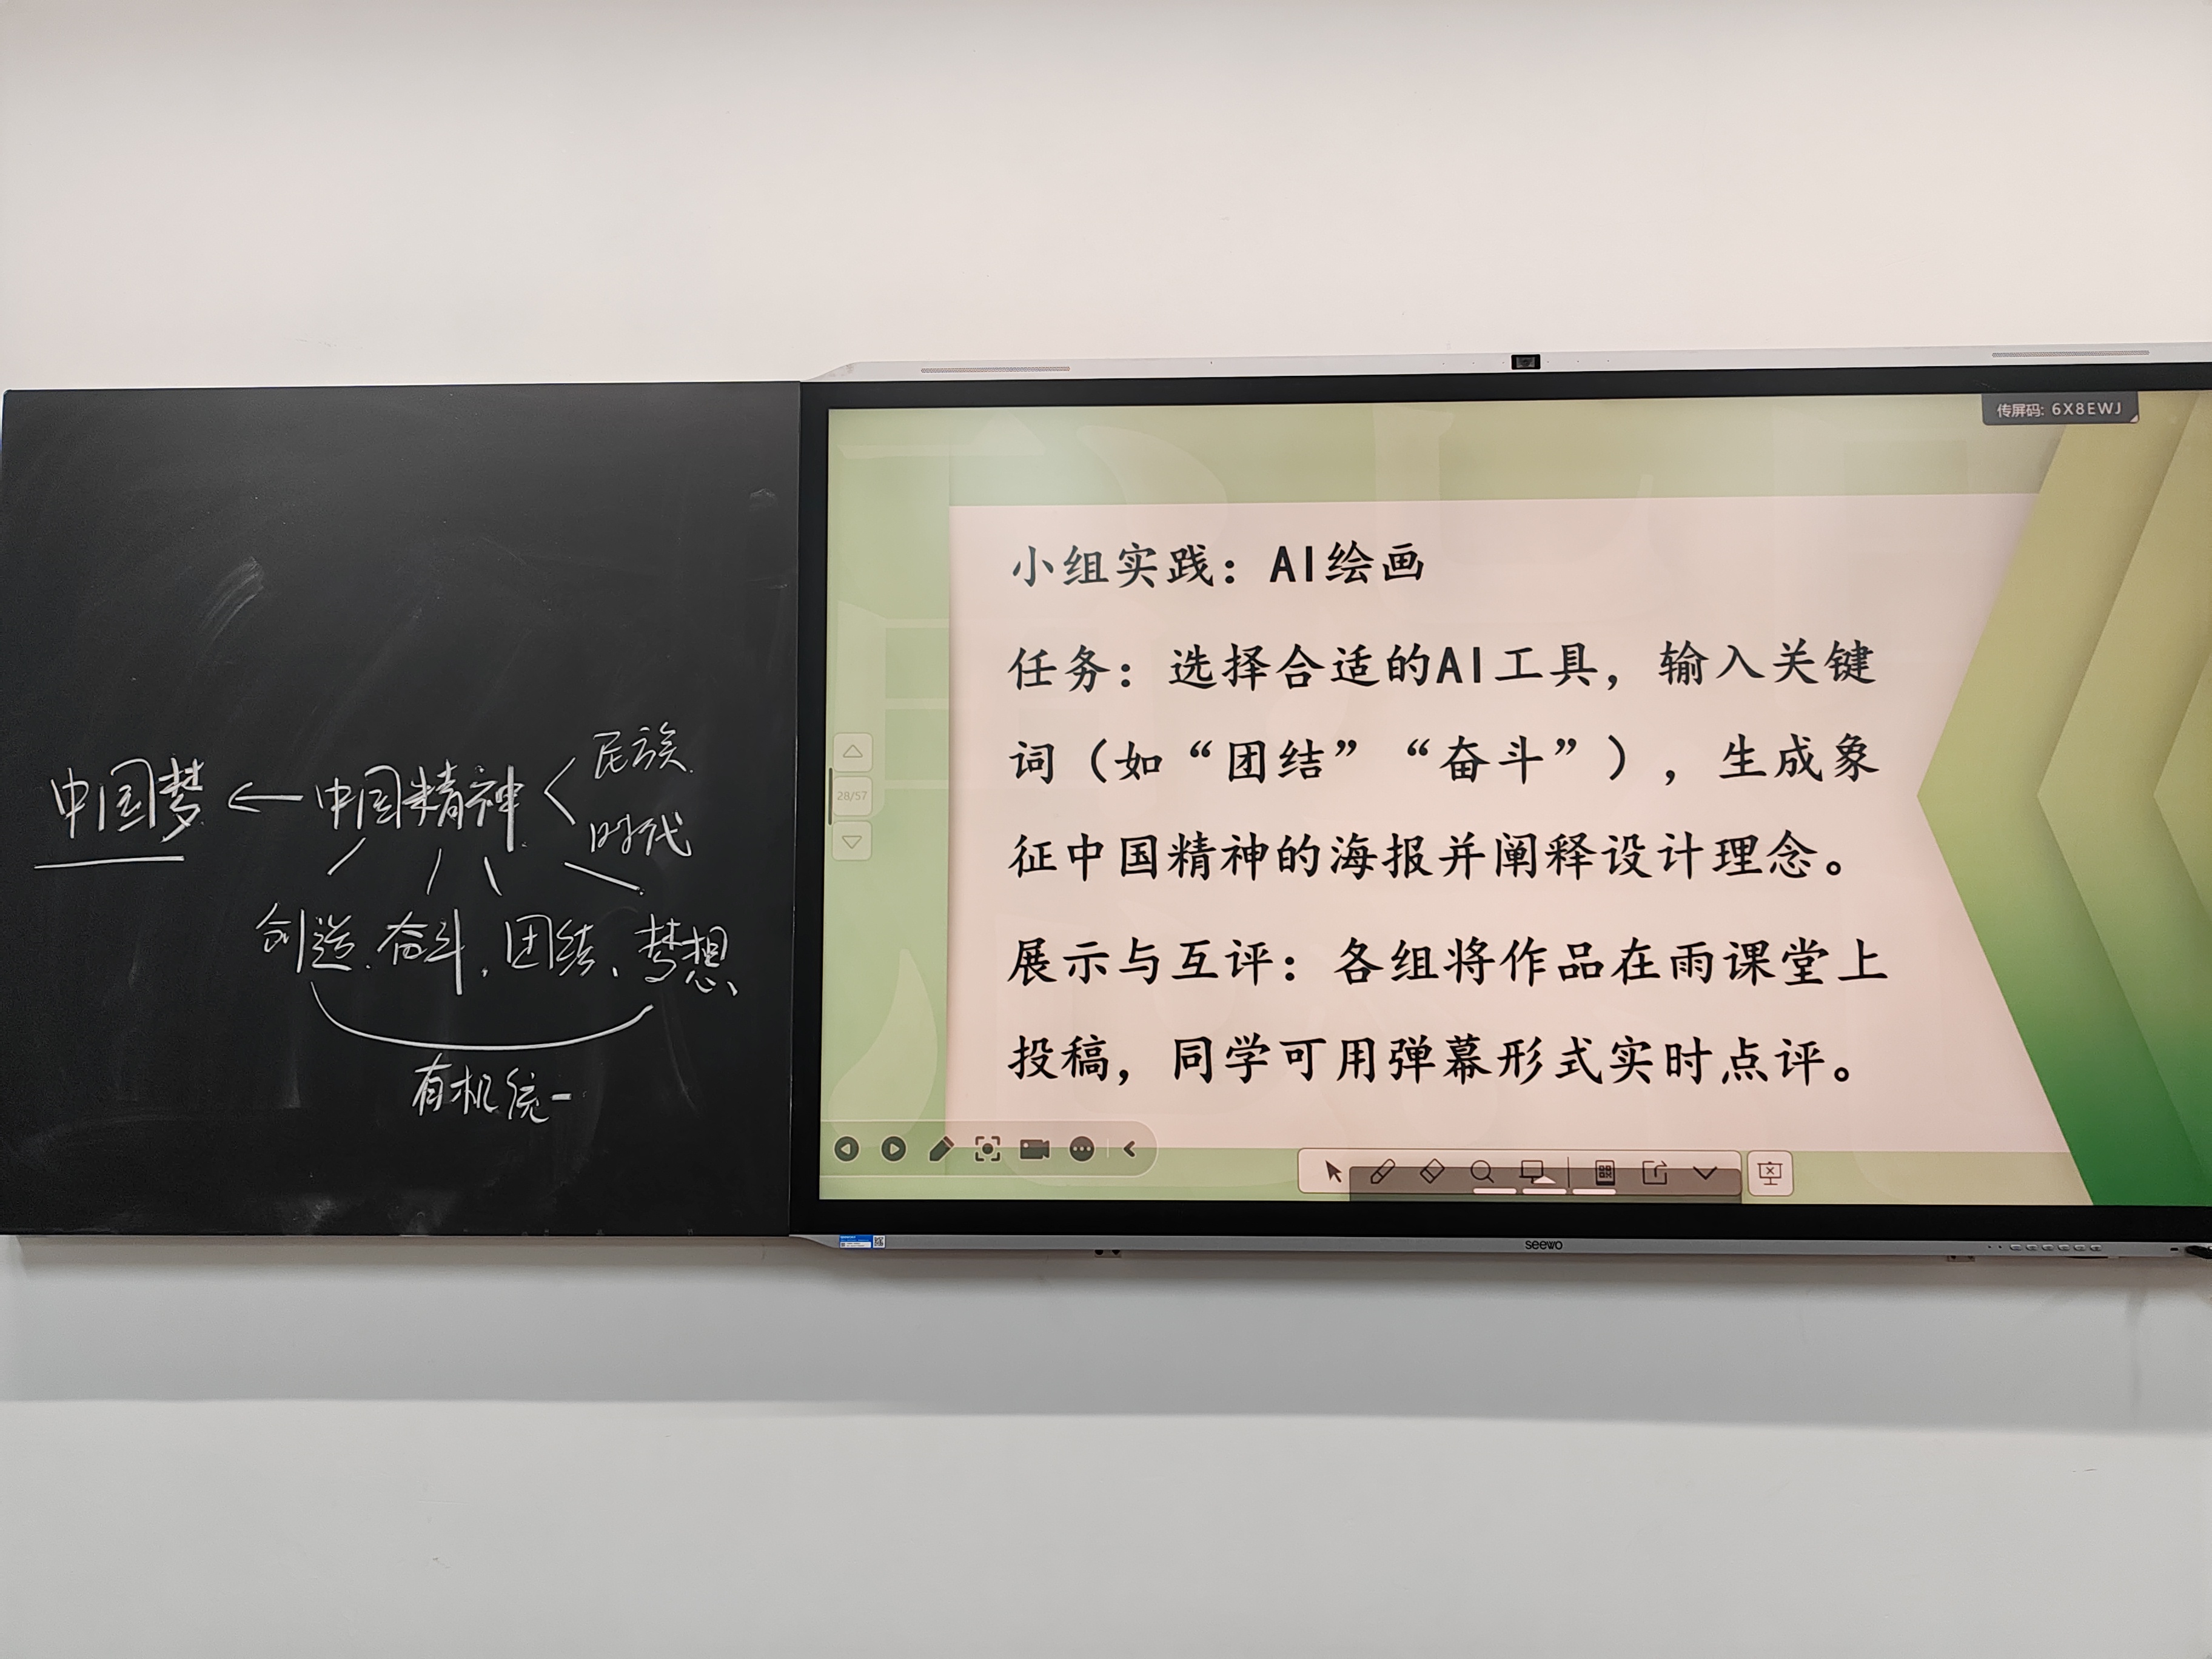 中国梦 ← 中国精神 < 民族
时代
创造、奋斗、团结、梦想、
有机统一
传屏码: 6X8EWJ
小组实践：AI绘画
任务：选择合适的AI工具，输入关键
词（如“团结”“奋斗”），生成象
征中国精神的海报并阐释设计理念。
展示与互评：各组将作品在雨课堂上
投稿，同学可用弹幕形式实时点评。
28/57
seewo